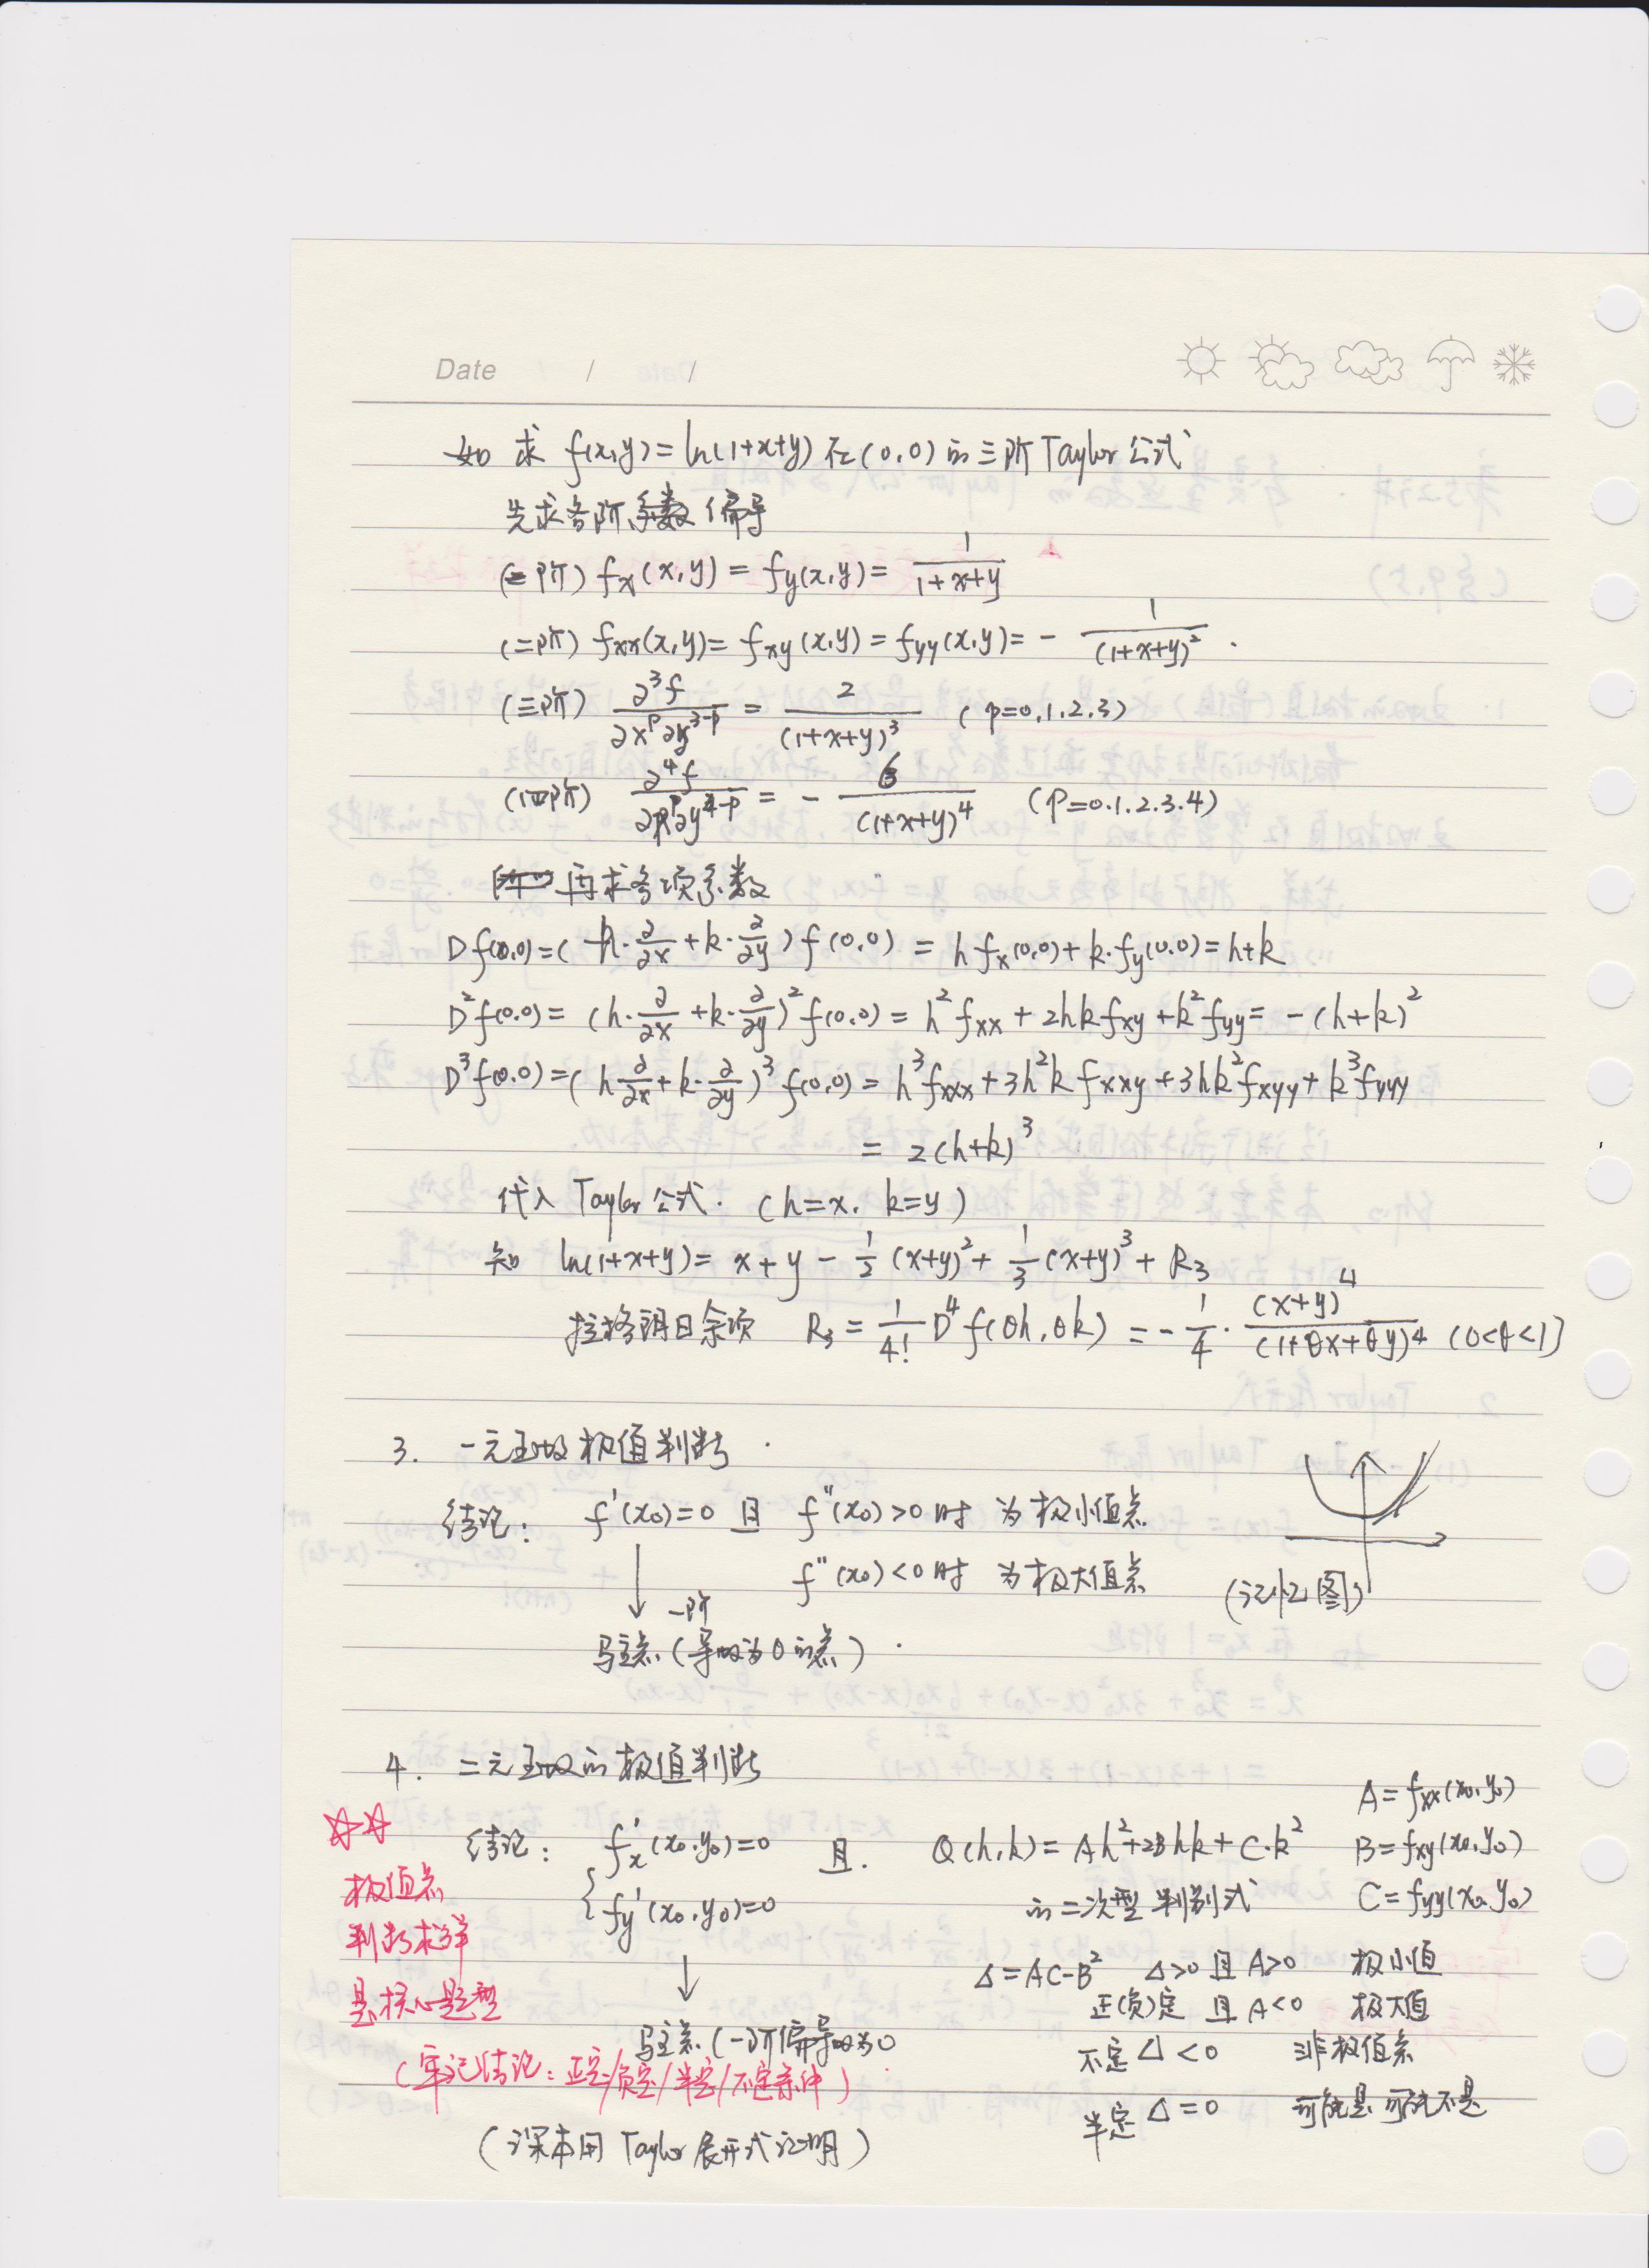 Date / /
如 求 f(x,y)=ln(1+x+y)在(0,0)的三阶Taylor公式
先求各阶偏导
(一阶) fx(x,y)=fy(x,y)= 1/(1+x+y)
(二阶) fxx(x,y)=fxy(x,y)=fyy(x,y)= - 1/(1+x+y)².
(三阶) ∂³f/∂x^p∂y^(3-p) = 2/(1+x+y)³ (p=0,1,2,3)
(四阶) ∂⁴f/∂x^p∂y^(4-p) = - 6/(1+x+y)⁴ (p=0.1.2.3.4)
再求各项系数
Df(0,0)=(h·∂/∂x+k·∂/∂y)f(0,0)=hfx(0,0)+k·fy(0,0)=h+k
D²f(0,0)=(h·∂/∂x+k·∂/∂y)²f(0,0)=h²fxx+2hkfxy+k²fyy=-(h+k)²
D³f(0,0)=(h∂/∂x+k·∂/∂y)³f(0,0)=h³fxxx+3h²kfxxy+3hk²fxyy+k³fyyy
=2(h+k)³
代入Taylor公式.(h=x, k=y)
知 ln(1+x+y)=x+y-1/2(x+y)²+1/3(x+y)³+R₃
拉格朗日余项 R₃=1/4! D⁴f(θh,θk)=-1/4·(x+y)⁴/(1+θx+θy)⁴ (0<θ<1)
3. 一元函数极值判断
结论: f'(x₀)=0 且 f''(x₀)>0时 为极小值点
f''(x₀)<0时 为极大值点
(记忆图)
一阶
驻点(导数为0的点).
4. 二元函数的极值判断
A=fxx(x₀,y₀)
结论: fx'(x₀,y₀)=0 且. Q(h,k)=Ah²+2Bhk+C·k² B=fxy(x₀,y₀)
{fy'(x₀,y₀)=0 的二次型判别式 C=fyy(x₀,y₀)
☆☆
极值点
判断求详
是核心题型
Δ=AC-B² Δ>0且A>0 极小值
正(负)定 且A<0 极大值
驻点(一阶偏导数为0
不定Δ<0 非极值点
(牢记结论:正定/负定/半定/不定条件)
半定Δ=0 可能是可能不是
(课本用Taylor展开式证明)